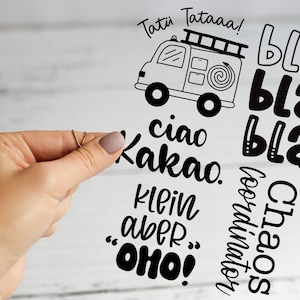 Tatü Tataaa!
ciao
Kakao.
klein
aber
"OHO!"
bla
bla
bla
Chaos
Coordinator